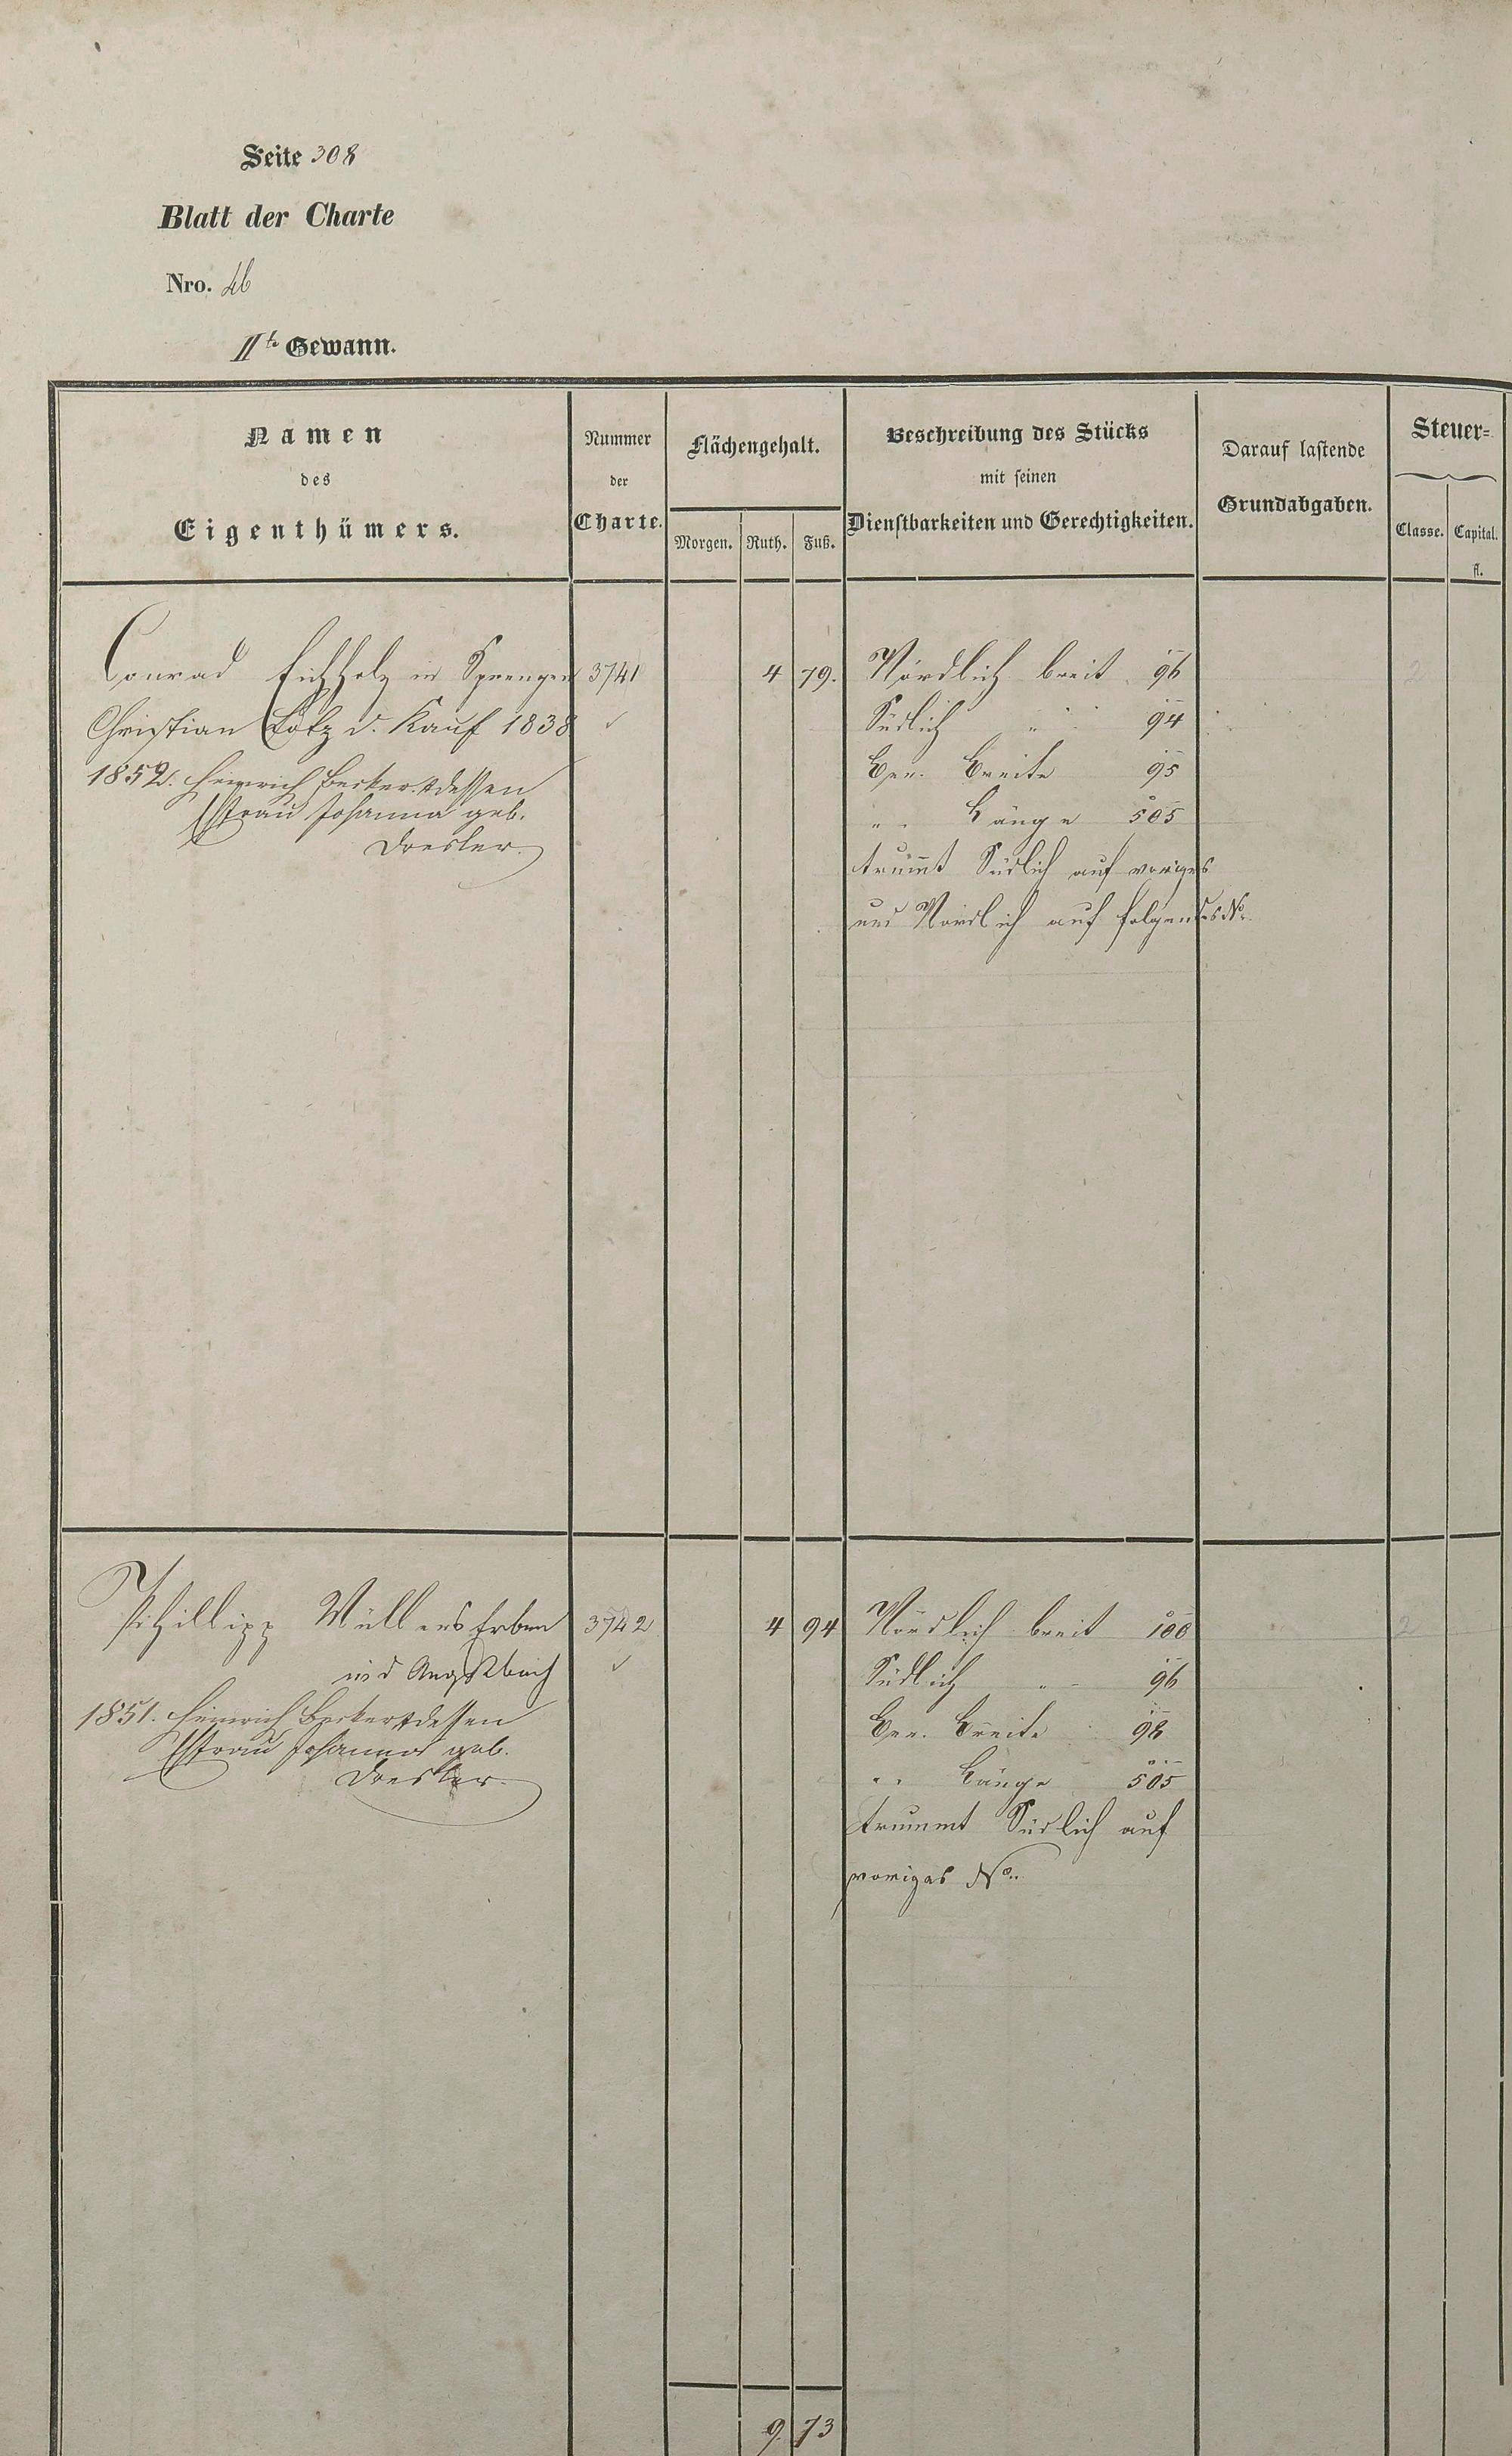 Seite 308
Blatt der Charte
Nro. 46
IIte Gewann.
Namen
des
Eigenthümers.
Nummer
der
Charte.
Flächengehalt.
Morgen. Ruth. Fuß.
Beschreibung des Stücks
mit seinen
Dienstbarkeiten und Gerechtigkeiten.
Darauf lastende
Grundabgaben.
Steuer=
Classe. Capital.
fl.
Conrad Eichholz in 3741 4 79. Nördlich breit 96 2
Christian Lotz d. Kauf 1838 Südlich " 94
1852. Heinrich Becker & dessen Ger. Breite 95
Ehfrau Johanna geb. " Länge 505
Doesler. trumt Südlich auf voriges
und Nördlich auf folgendes No.
Phillipp Müllers Erben 3742 4 94 Nördlich breit 100 2
Südlich " 96
1851. Heinrich Becker & dessen Ger. Breite 98
Ehfrau Johanna geb. " Länge 505
Doesler. trummt Südlich auf
voriges No.
9 73